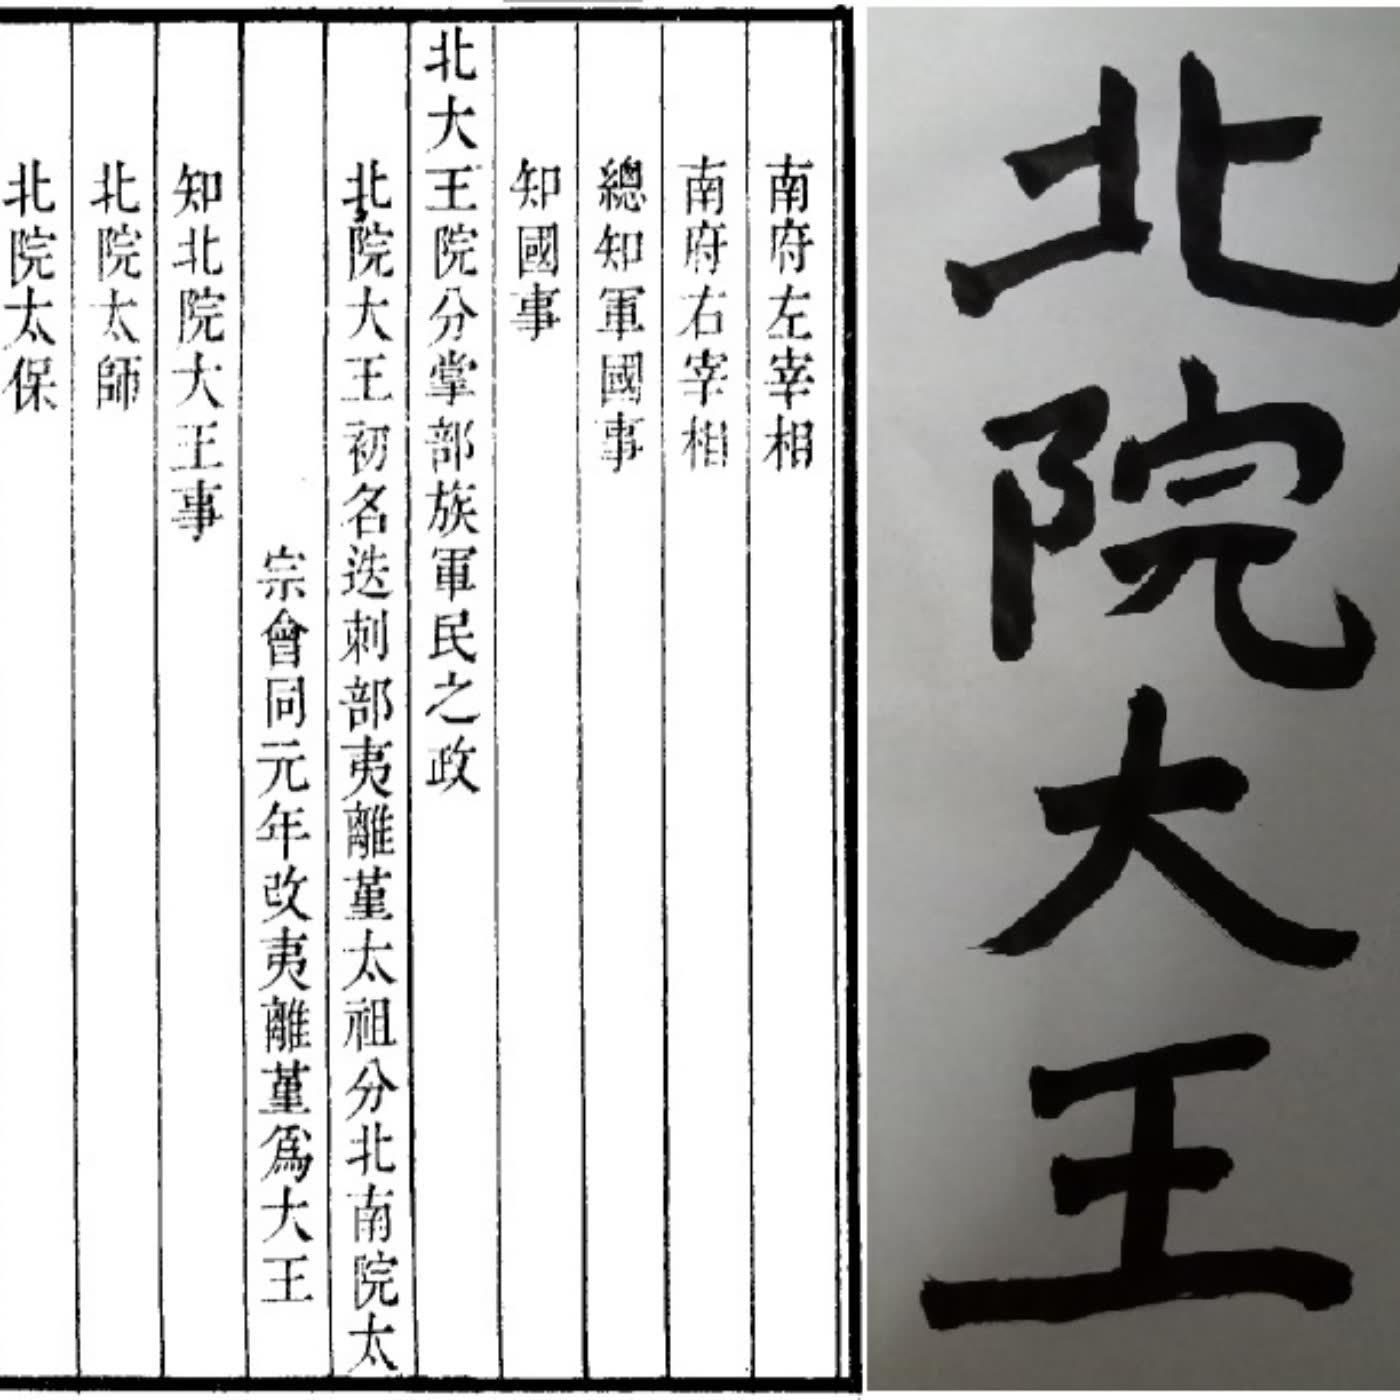 南府左宰相
南府右宰相
總知軍國事
知國事
北大王院分掌部族軍民之政
北院大王初名迭剌部夷離堇太祖分北南院太
宗會同元年改夷離堇爲大王
知北院大王事
北院太師
北院太保
北院大王